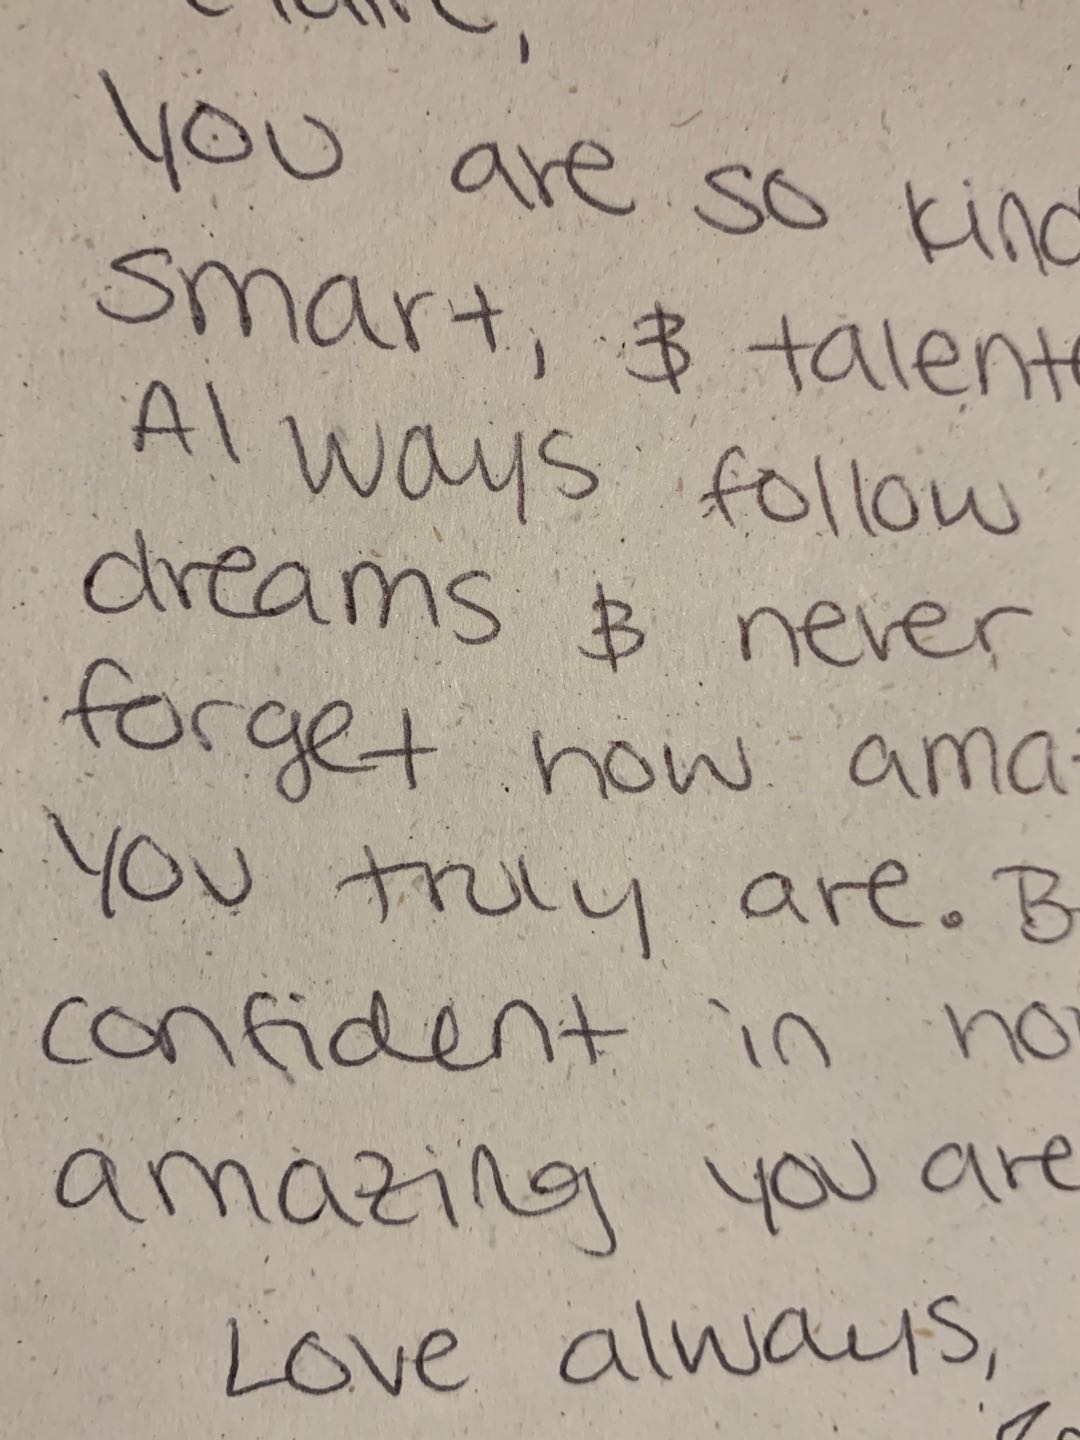 You are so kind
smart, & talente
Always follow
dreams & never
forget how ama
you truly are. B
confident in ho
amazing you are
Love always,